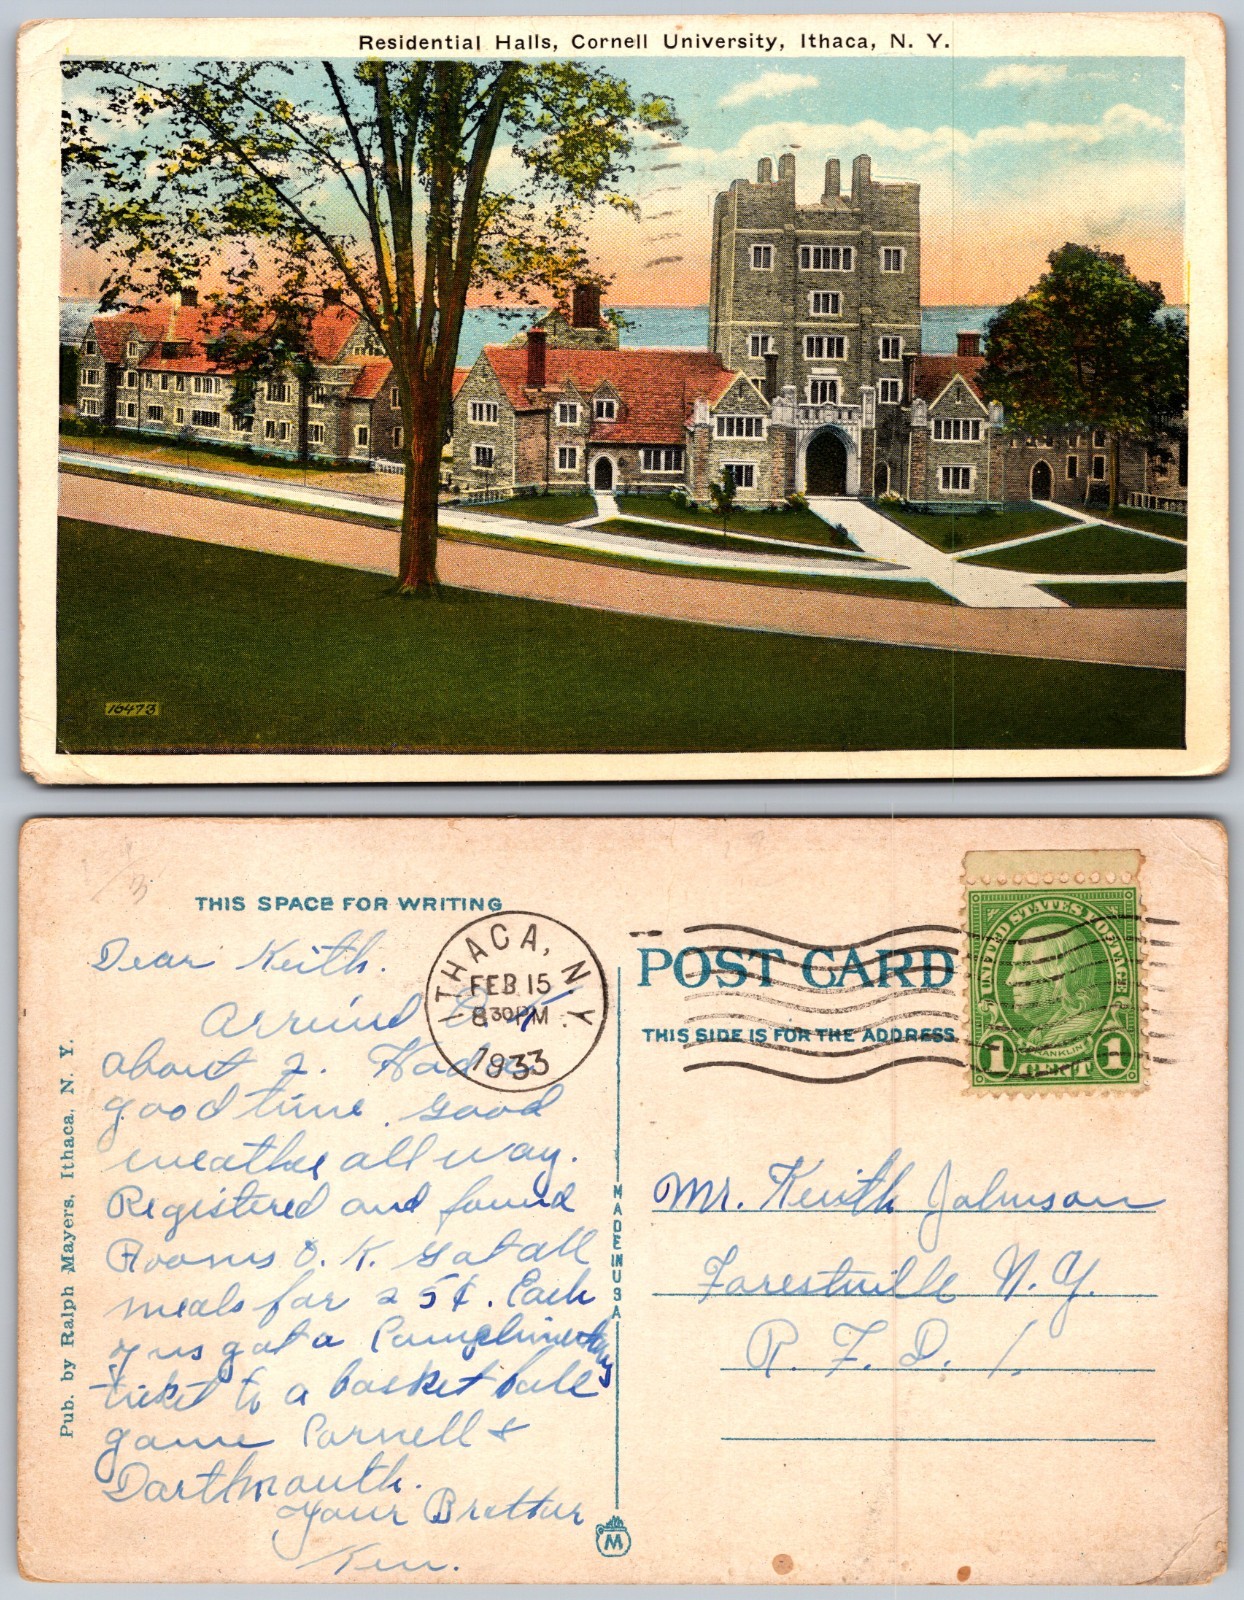 Residential Halls, Cornell University, Ithaca, N. Y.
16473
THIS SPACE FOR WRITING
Dear Keith.
Arrived O.K.
about 2. Had a
good time. Good
weather all way.
Registered and found
Rooms O. K. Got all
meals for 25¢. Each
of us got a Complimentary
ticket to a basket ball
game Cornell &
Dartmouth.
Your Brother
Ken.
Pub. by Ralph Mayers, Ithaca, N. Y.
MADE IN USA
M
ITHACA, N.Y.
FEB 15
830PM
1933
POST CARD
THIS SIDE IS FOR THE ADDRESS
UNITED STATES POSTAGE
FRANKLIN
1 CENT 1
Mr. Keith Johnson
Forestville N. Y.
R. F. D. 1.